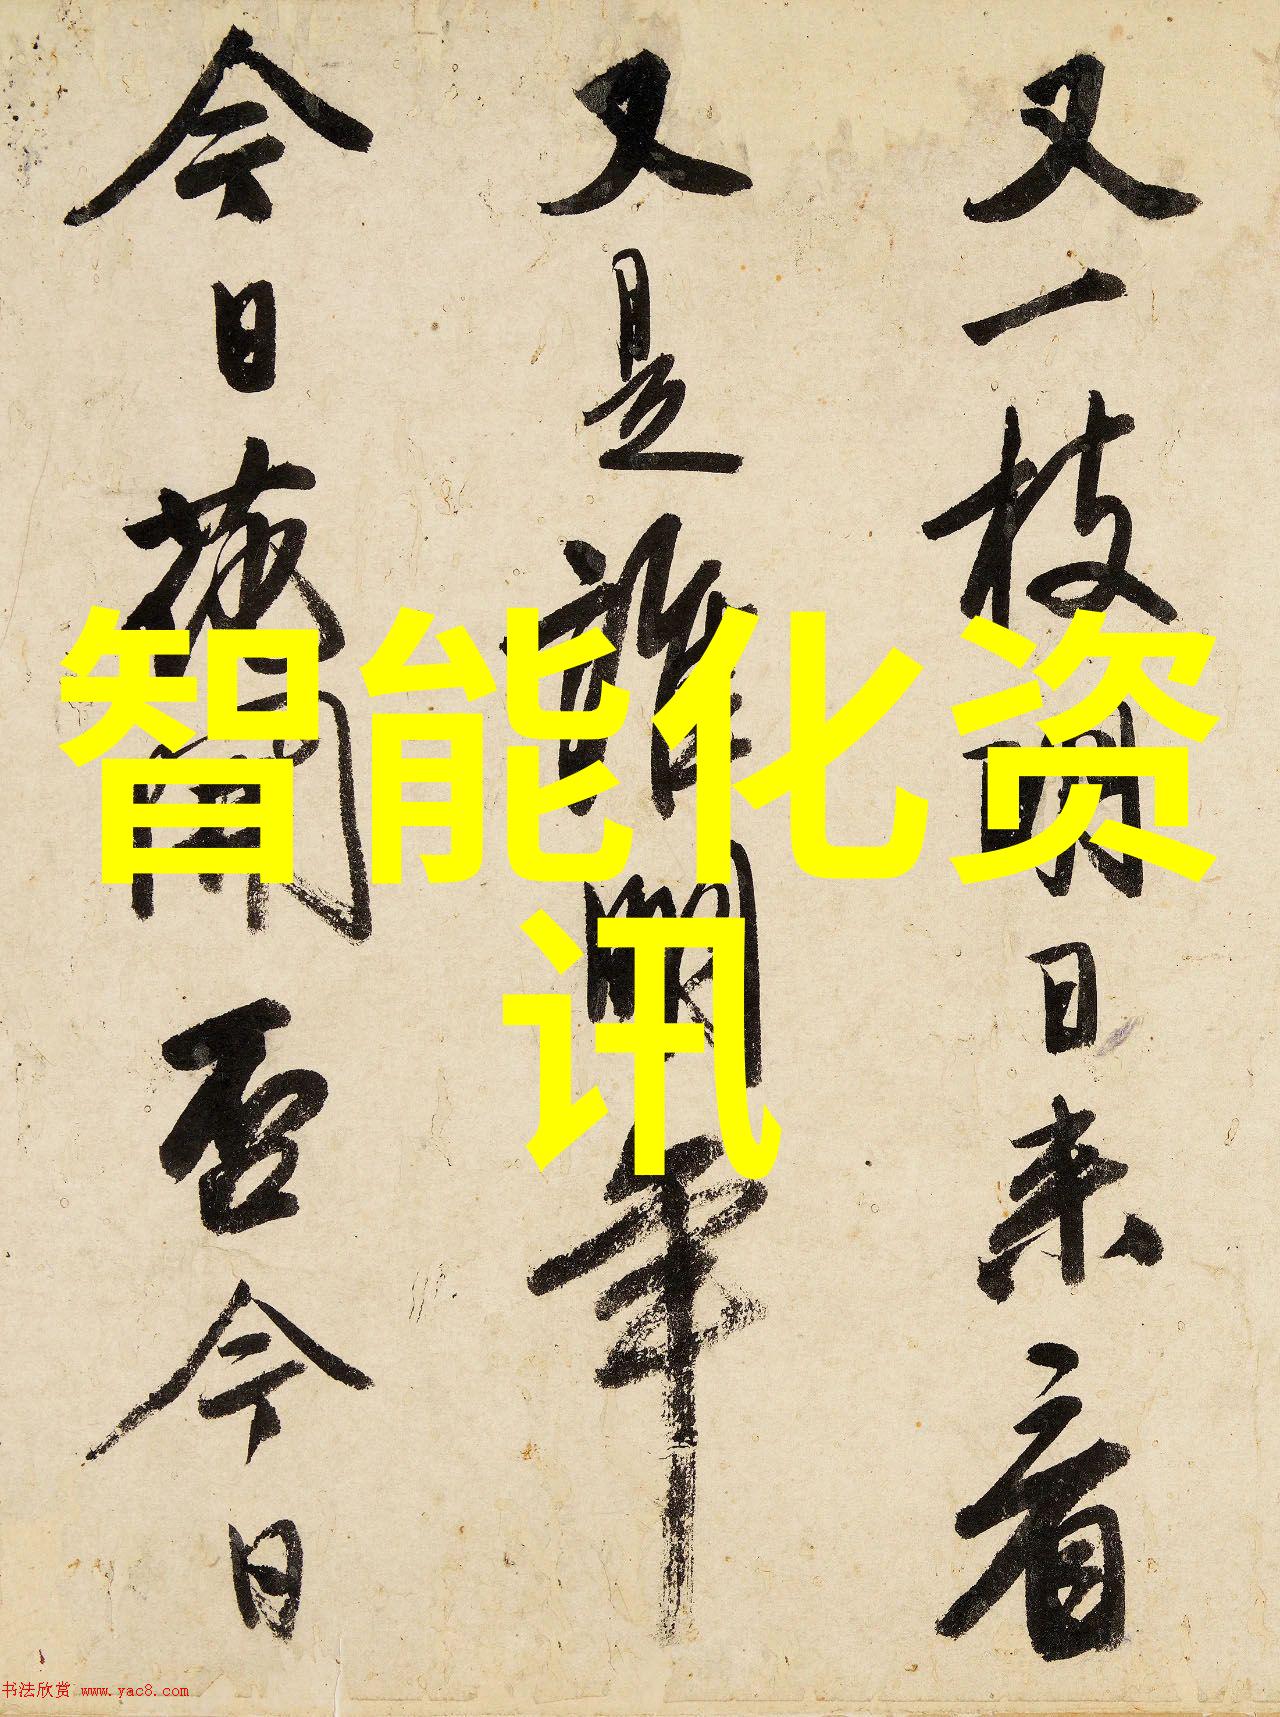 又一枝明日来看
又是誰明年
今日花開否今日
智能化资
讯
书法欣赏 www.yac8.com